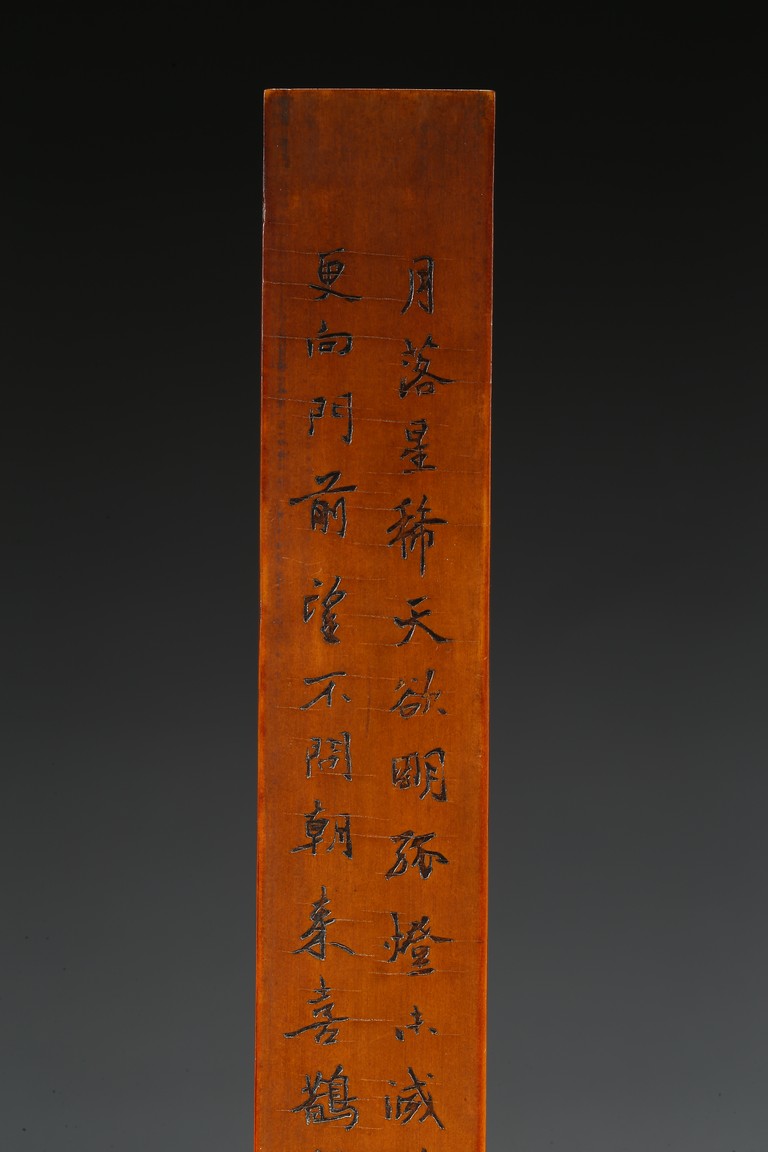 月落星稀天欲明孤燈未滅
更向門前望不問朝來喜鵲